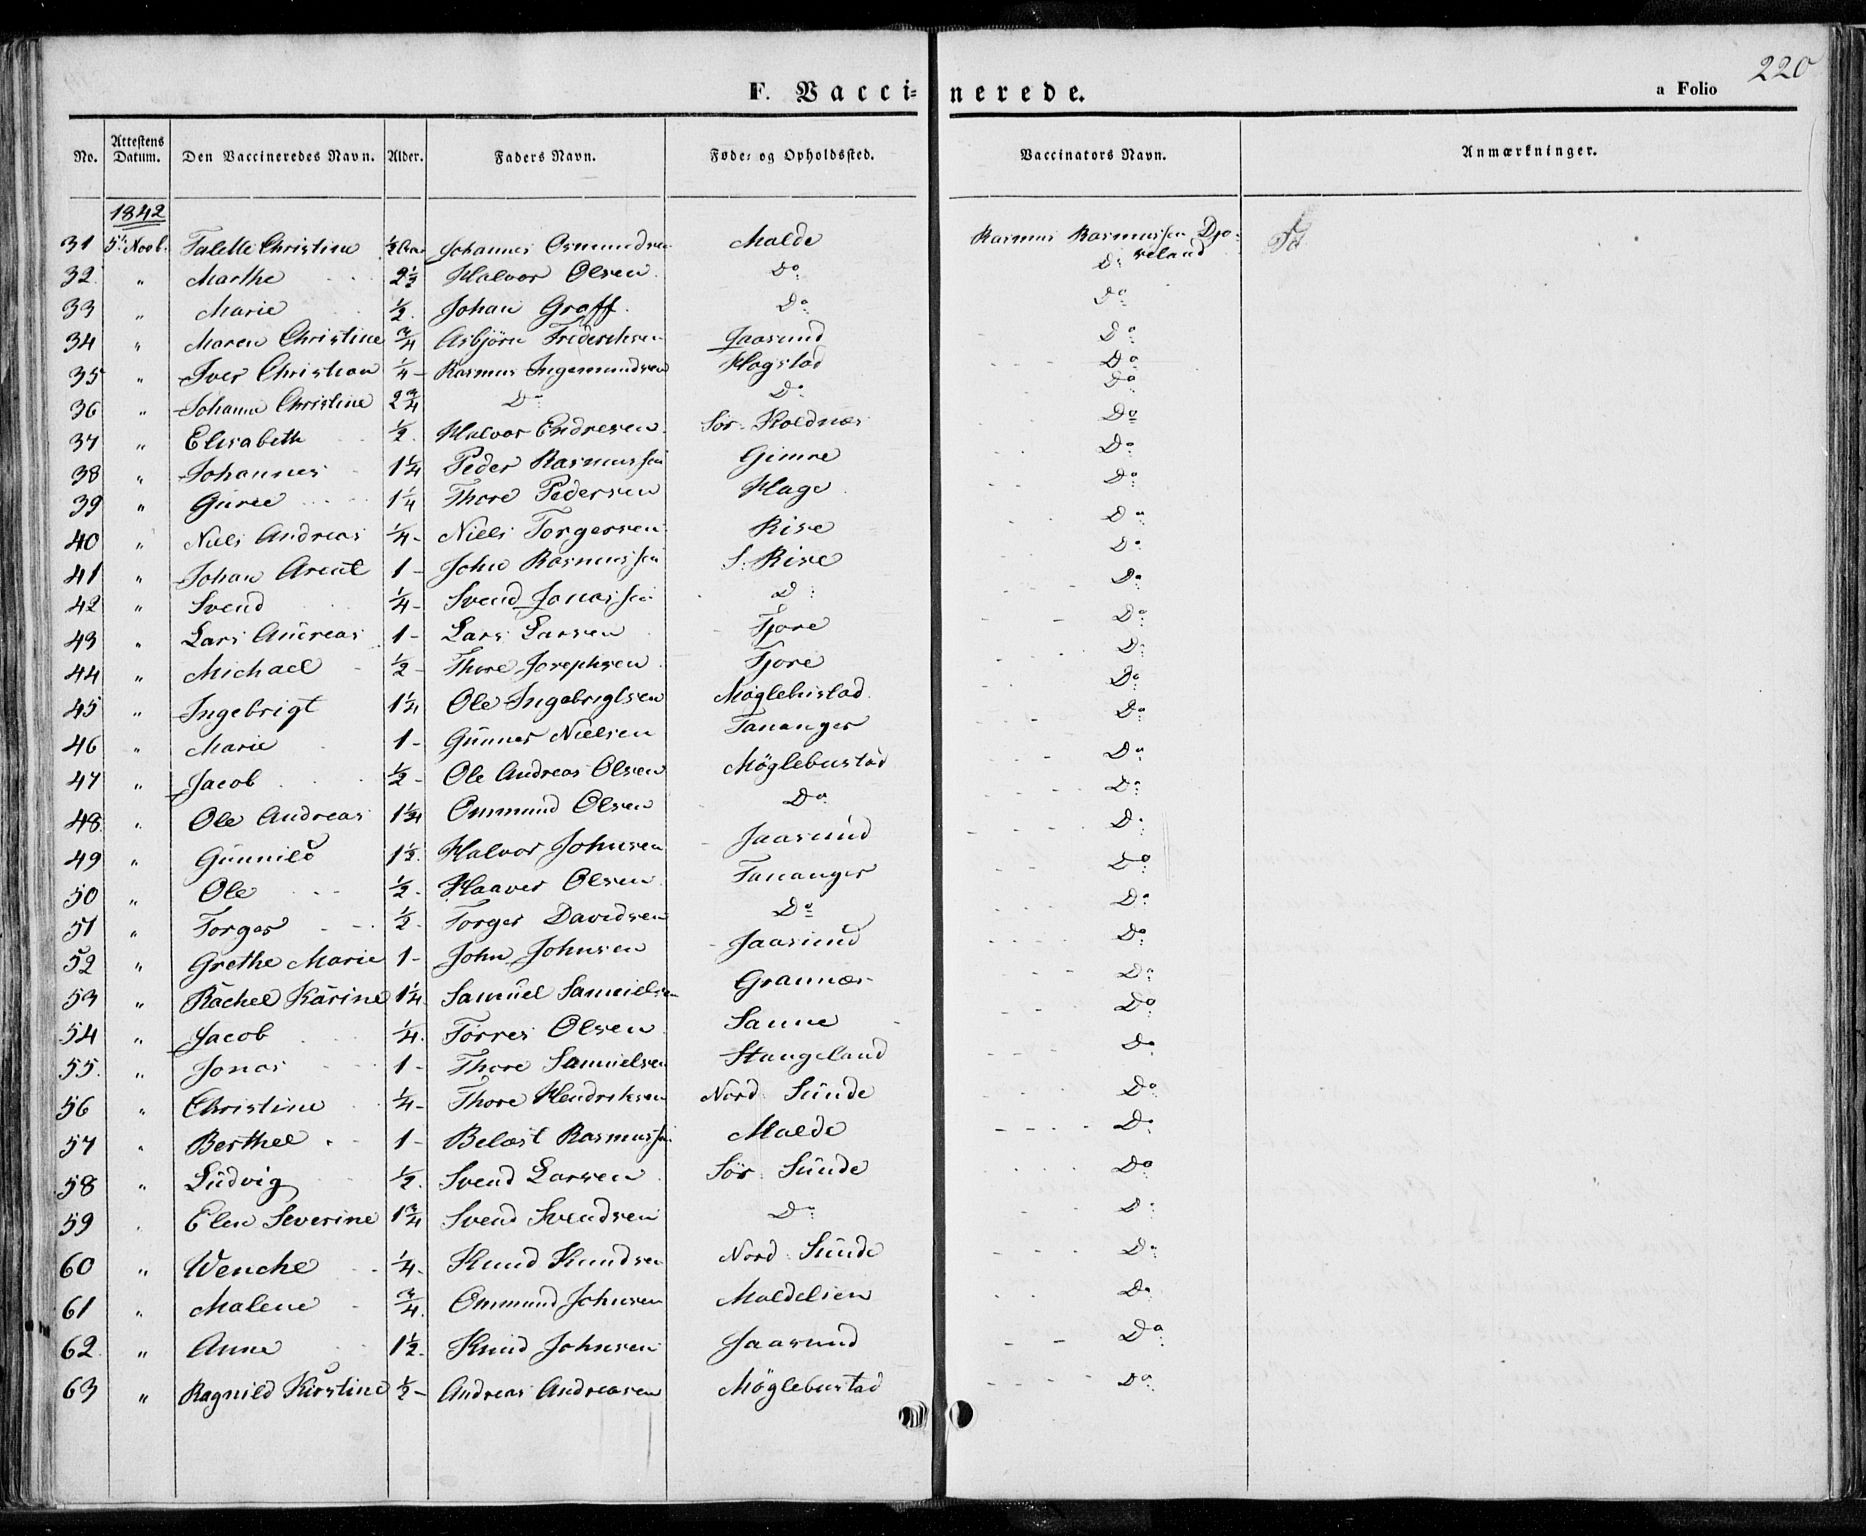 220
F. Vaccinerede.
a Folio
No. Attestens Datum. Den Vaccineredes Navn. Alder. Faders Navn. Føde- og Opholdssted. Vaccinators Navn. Anmærkninger.
1842
31 5t Novb. Talette Christine ½ Johannes Osmundsen Malde Rasmus Rasmussen Djo-
reland
32 " Marthe 2½ Halvor Olsen Do Do
33 " Marie ½ Johan Graff Do Do
34 " Maren Christine ¾ Asbjörn Friderichsen Jaasund Do
35 " Iver Christian ¼ Rasmus Ingemundsen Hogstad Do
36 " Johanne Christine 2¾ Do Do Do
37 " Elisabeth ½ Halvor Endresen Sør Koldnæs Do
38 " Johannes 1¼ Peder Rasmussen Gimre Do
39 " Guree 1¼ Thore Pedersen Hage Do
40 " Niels Andreas ¼ Niels Torgersen Rise Do
41 " Johan Arent 1 John Rasmussen S. Rise Do
42 " Svend ¼ Svend Jonassen Do Do
43 " Lars Andreas 1 Lars Larsen Tjore Do
44 " Michael ½ Thore Josephsen Tjore Do
45 " Ingebrigt 1¼ Ole Ingebrigtsen Møglebustad Do
46 " Marie 1 Gunner Nielsen Tananger Do
47 " Jacob ½ Ole Andreas Olsen Møglebustad Do
48 " Ole Andreas 1¾ Ommund Olsen Do Do
49 " Gunnild 1½ Halvor Johnsen Jaasund Do
50 " Ole ½ Haaver Olsen Tananger Do
51 " Torger ½ Torger Davidsen Do Do
52 " Grethe Marie 1 John Johnsen Jaasund Do
53 " Rachel Karine 1¼ Samuel Samuelsen Grannæs Do
54 " Jacob ¼ Torres Olsen Sanne Do
55 " Jonas 1 Thore Samuelsen Stangeland Do
56 " Christine ¼ Thore Hendriksen Nord Sunde Do
57 " Berthee 1 Belast Rasmussen Malde Do
58 " Ludvig ½ Svend Larsen Sør Sunde Do
59 " Elen Severine 1¾ Svend Svendsen Do Do
60 " Wenche ¼ Knud Knudsen Nord Sunde Do
61 " Malene ¾ Ommund Johnsen Maldelien Do
62 " Anne 1½ Knud Johnsen Jaasund Do
63 " Ragnild Kirstine ½ Andreas Andreasen Møglebustad Do